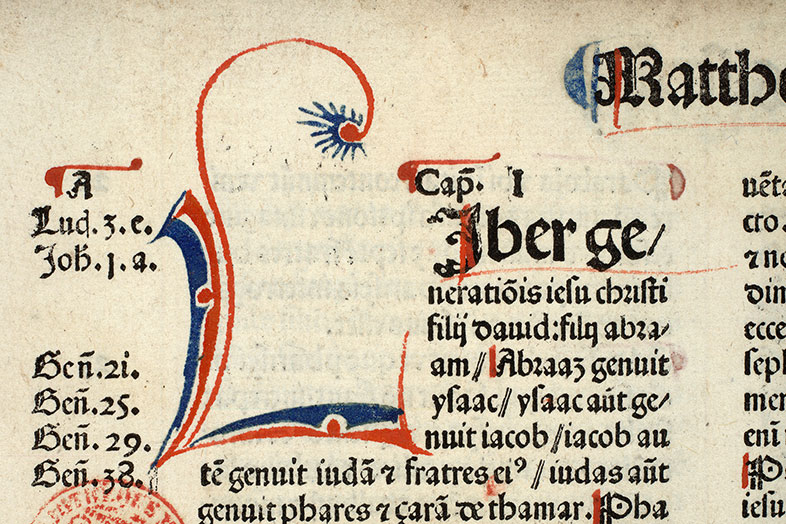 Matth
A
Luc̃. 3. e.
Joh̃. 1. a.
Geñ. 21.
Geñ. 25.
Geñ. 29.
Geñ. 38.
Cap̃. I
LIber ge/
neratiõis iesu christi
filij dauid: filij abra⸗
am // Abraaz genuit
ysaac / ysaac aũt ge⸗
nuit iacob / iacob au
tẽ genuit iudã ⁊ fratres eiꝰ / iudas aũt
genuit phares ⁊ çarã de thamar. Pha
uẽt
cto.
⁊ no
dim
ecce
sep
mer
eni
iesu